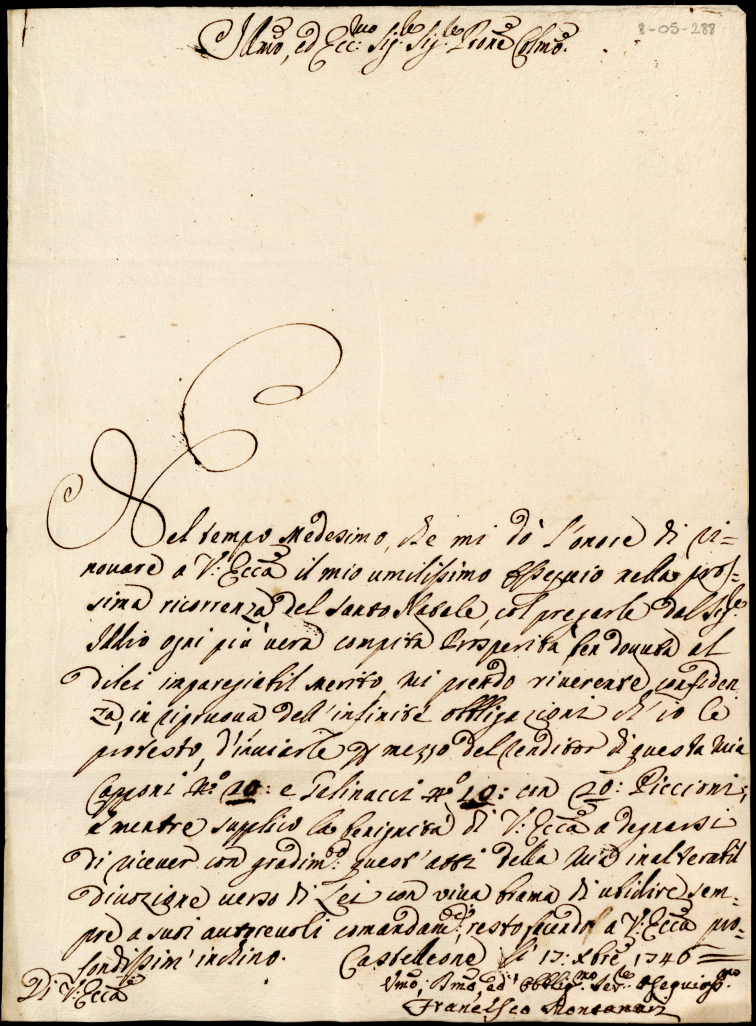 8-05-288
Illmo, ed Eccmo Sigr Sigr Prone Colmo.
Nel tempo medesimo, che mi dò l'onore di ri=
novare a V: Ecca il mio umilissimo Ossequio nella pros=
sima ricorrenza del Santo Natale, col pregarle dal Sigr
Iddio ogni più vera compita Prosperità, ben dovuta al
dilei impareggiabil merito, mi prendo riverente confiden
za, in ripruova dell'infinite obbligazioni ch'io le
protesto, d'inviarle p mezzo del lenditor di questa mia
Capponi No 20: e Gelinacci no 10: con 20: Piccioni;
e mentre supplico la benignità di V: Ecca a degnarsi
di ricever con gradimto quest'atti della mia inalterabil
divozione verso di Lei con viva brama di ubidire sem=
pre a suoi autorevoli comandamti, resto facendo a V: Ecca pro=
fondissim' inchino. Castelleone li 17: Xbre 1746
Di V: Ecca
Umo, Dmo, ed Obbligmo Serre Ossequiosmo
Francesco Montanari